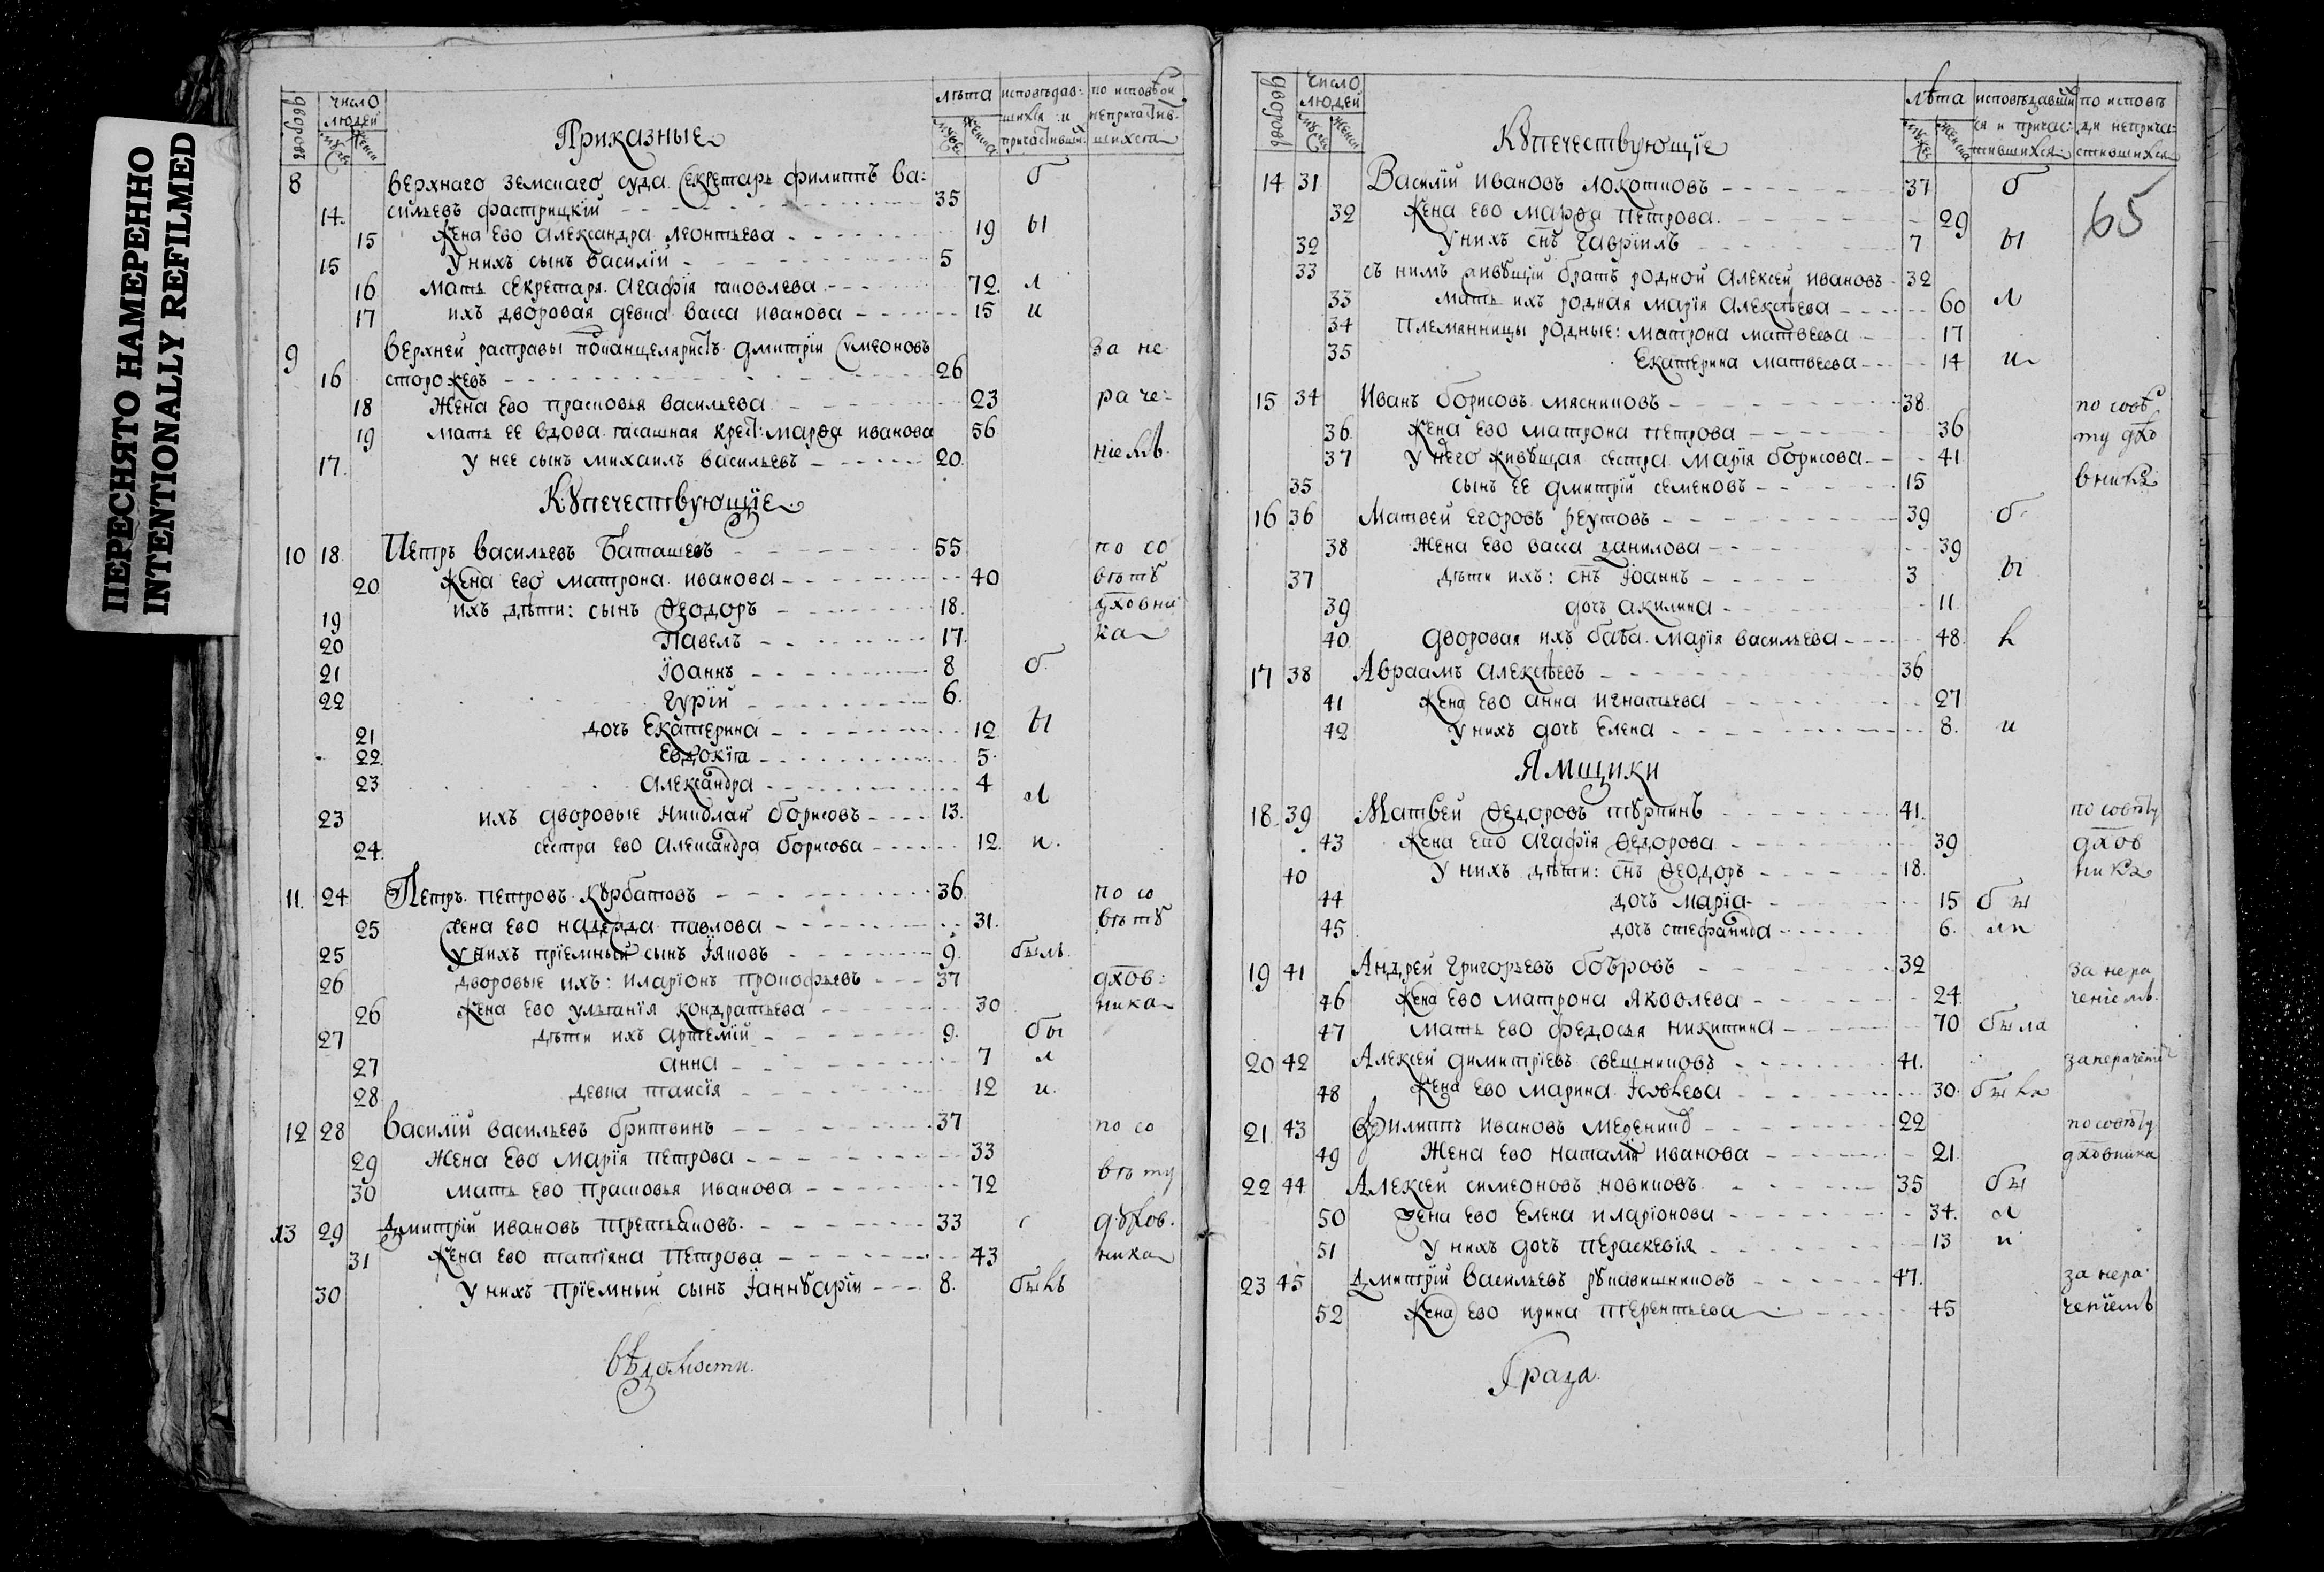 ПЕРЕСНЯТО НАМЕРЕННО
INTENTIONALLY REFILMED
дворовъ число людей мужес женска Приказные лѣта мужес женска исповѣдав: шихся и причастивших по исповѣди непричастив: шихся
8 верхнаго земскаго суда секретарь филиппъ ва: б
14. сильевъ фастрицкій 35
15 жена ево александра леонтьева 19 ы
15 у нихъ сынъ василій 5
16 мать секретаря агафія яковлева 72 л
17 ихъ дворовая девка васса иванова 15 и
9 верхней расправы покканцеляристъ дмитріи симеоновъ за не
16 сторожевъ 26
18 жена ево прасковья васильева 23 раче:
19 мать ее вдова ясашная крест: марѳа иванова 56
17. у нее сынъ михаилъ васильевъ 20. ніемъ.
Кꙋпечествующїе
10 18 Петръ васильевъ баташевъ 55 по со
20 жена ево матрона иванова 40 вѣтꙋ
19 ихъ дѣти: сынъ ѳеодоръ 18. дховни
20 Павелъ 17. ка
21 Їоаннъ 8 б.
22 гурїи 6.
21 дочь Екатерина 12 ы
22. Евдокїя 5.
23 александра 4
23 ихъ дворовые николай борисовъ 13. л
24. сестра ево александра борисова 12. и.
11. 24 Петръ петровъ кꙋрбатовъ 36 по со
25 жена ево надежда павлова 31. вѣтꙋ
25 у нихъ прїемный сынъ Їяковъ 9. былъ.
26 дворовые ихъ: иларїонъ прокофьевъ 37 дхов:
26 жена ево ульянїя кондратьева 30 ника
27 дѣти ихъ артемїй 9. бы
27 анна 7 л
28 девка таисїя 12 и.
12 28 василїй васильевъ бритвинъ 37 по со
29 жена ево марїя петрова 33
30 мать ево прасковья иванова 72 вѣту
13 29 дмитрїй ивановъ третьяковъ. 33 дꙋхов.
31 жена ево татїяна петрова 43 ника
30 у нихъ прїемный сынъ Їаннꙋарїи 8. былъ
вѣдомости.
дворовъ число людей мужес женска Кꙋпечествующїе лѣта мужес женска исповѣдавши ся и причас: тившихся по исповѣ ди неприча: стившихся
65
14 31 Василїй ивановъ локотковъ 37 б
32 жена ево марѳа петрова. 29
32 у нихъ снъ гаврїилъ 7 ы
33 съ нимъ живꙋщїй братъ родной алексей ивановъ 32
33 мать ихъ родная марїя алексѣева 60 л
34 племянницы родные: матрона матвеева 17
35 екатерина матвеева 14 и
15 34 Иванъ борисовъ мясниковъ 38. по совѣ
36. жена ево матрона петрова 36 ту дхо
37 у него живꙋщая сестра марїя борисова 41
35 сынъ ее дмитрїй семеновъ 15 вника
16 36 Матвей егоровъ реутовъ 39 б.
38 жена ево васса данилова 39
37 дѣти ихъ: снъ Їоаннъ 3 ы
39 дочь акилина 11.
40 дворовая ихъ баба марїя васильева 48. л
17 38 Авраамъ алексѣевъ 36
41 жена ево анна игнатьева 27
42 у нихъ дочь елена 8. и
Ямщики
18. 39 Матвей ѳедоровъ тꙋрпинъ 41. по совѣту
43 жена ево агафїя ѳедорова 39 дхов
40 у нихъ дѣти: снъ ѳеодоръ 18. ника
44 дочь марїа 15 бы
45 дочь стефанида 6. ли
19 41 Андрей григорьевъ бобровъ 32 за нера
46 жена ево матрона яковлева 24. ченїемъ.
47 мать ево федосья никитина 70 была
20 42 Алексей димитрїевъ свешниковъ 41. за нераченїе
48 жена ево марина Їевлева 30. была
21. 43 Филиппъ ивановъ меренинъ 22 по совѣту
49 жена ево наталїя иванова 21. дховника
22 44 Алексей симеоновъ новиковъ. 35 бы
50 жена ево елена иларїонова 34. л
51 у нихъ дочь пераскевїя 13 и
23 45 Дмитрїй васильевъ рꙋкавишниковъ 47. за нера
52 жена ево ирина терентьева 45 ченїемъ
Града.